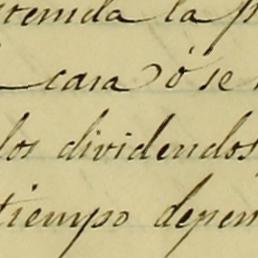 tenida la p
cara ó se
los dividendos
tiempo depen